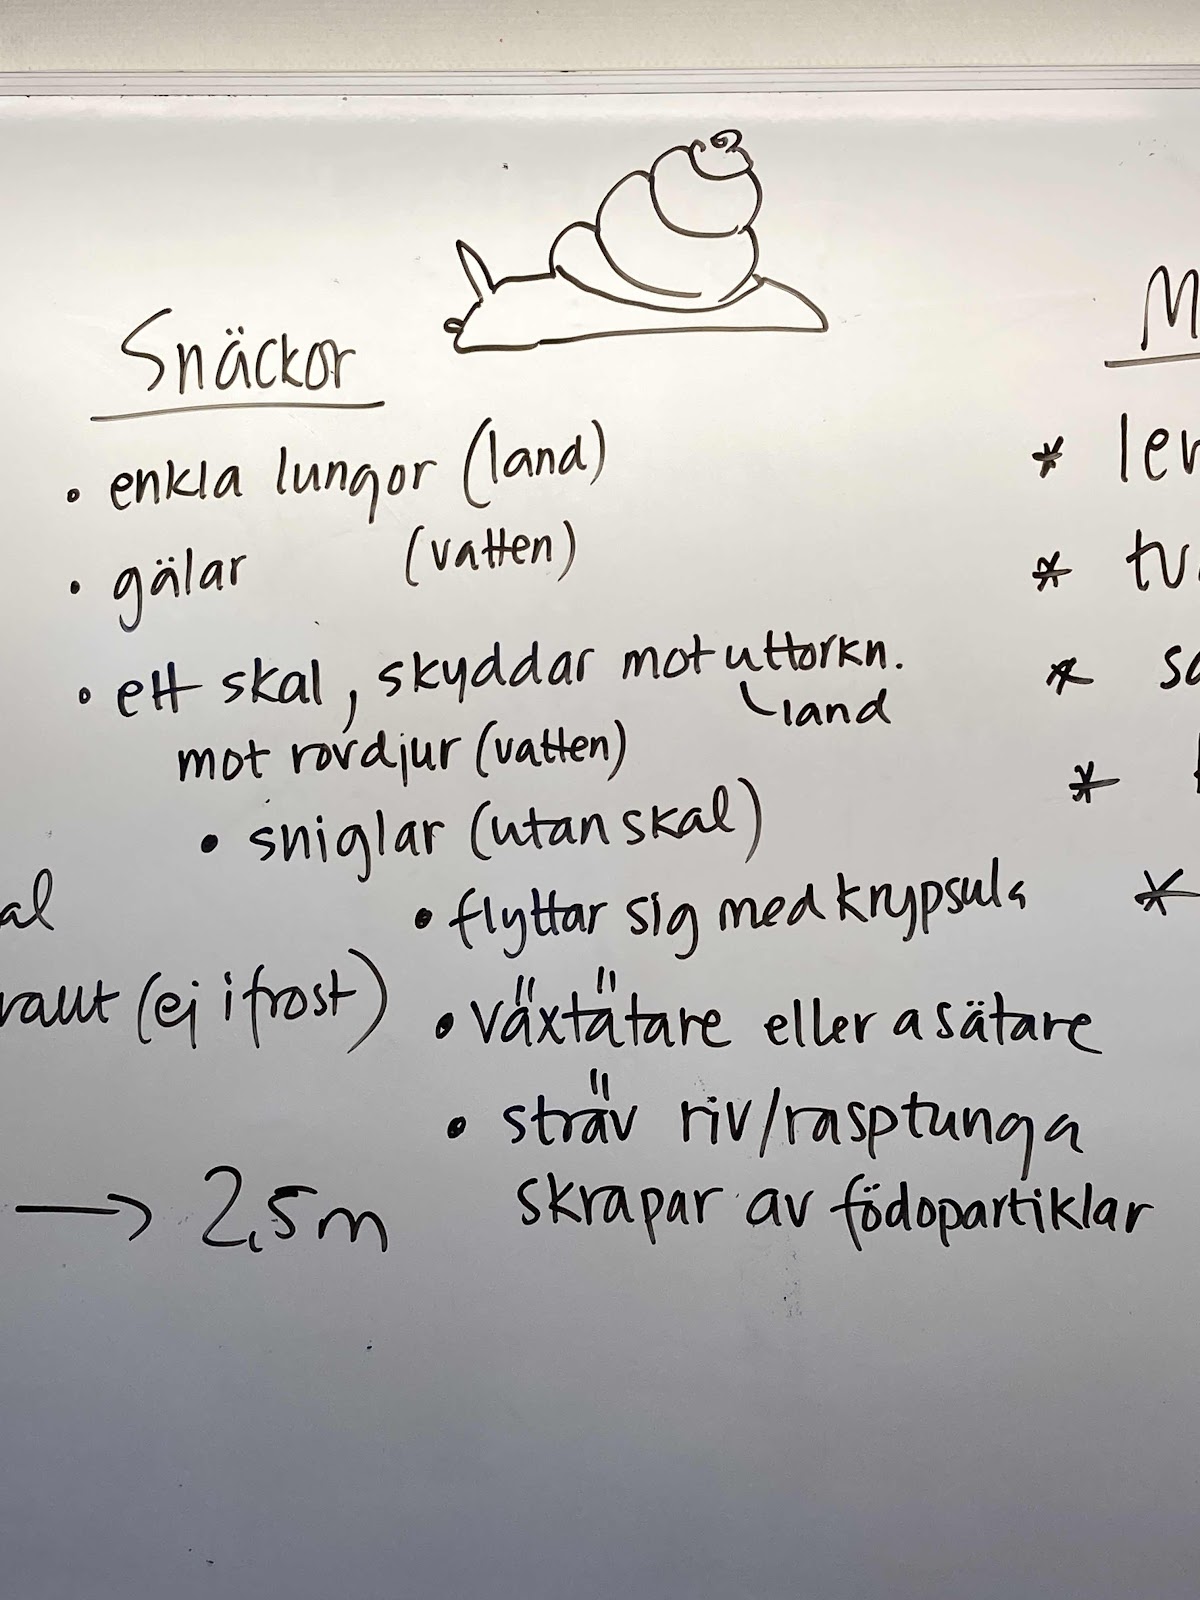 Snäckor
• enkla lungor (land)
• gälar (vatten)
• ett skal, skyddar mot uttorkn.
land
mot rovdjur (vatten)
• sniglar (utan skal)
• flyttar sig med krypsula
• växtätare eller asätare
• sträv riv/rasptunga
skrapar av födopartiklar
al
(ej i frost)
→ 2,5 m
M
*
* tv
* so
*
*